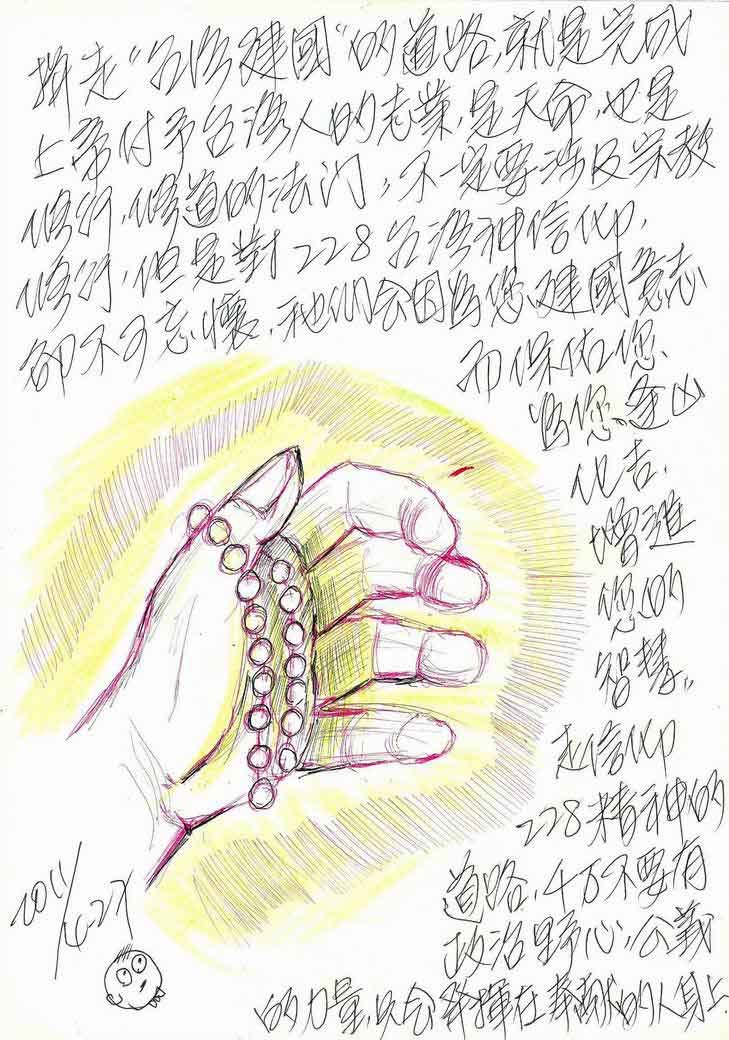 擇走“台湾建國“的道路,就是完成
上帝付予台湾人的志業,是天命,也是
修行,修道的法门,不一定要涉及宗教
修行,但是對228台湾神信仰,
卻不可忘懷,祂们会因為您、建國意志
而保佑您、
為您、逢凶
化吉,
增進
您的
智慧。
走信仰
228精神的
道路,千万不要有
政治野心,公義
的力量,只会發揮在奉獻的人身上
2011/